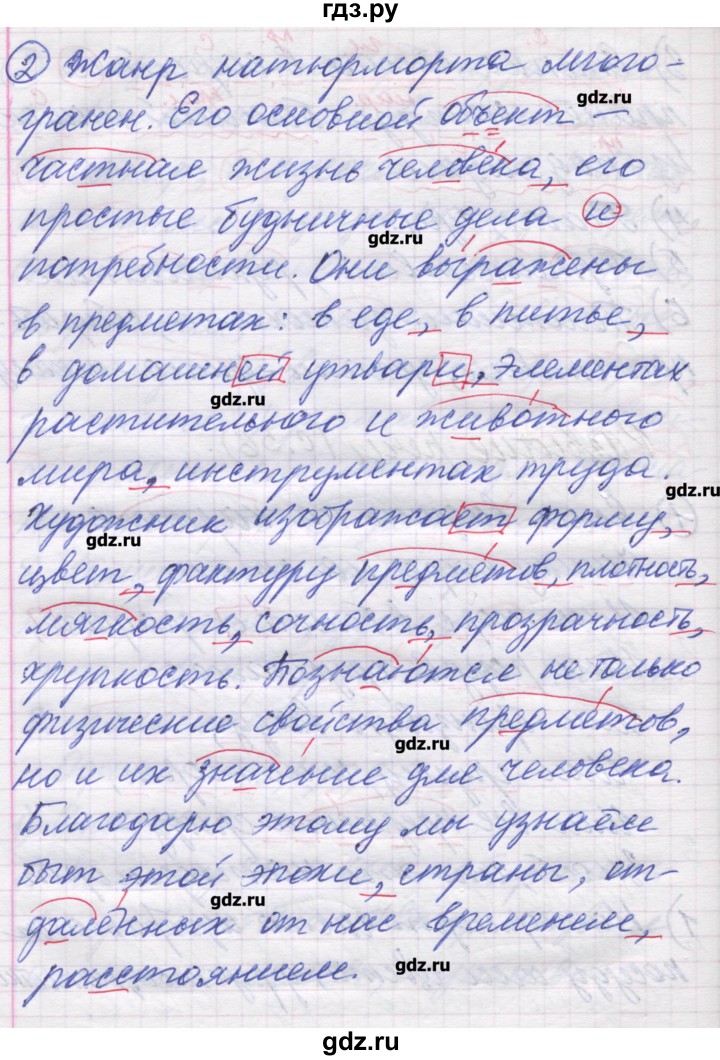 гдз.ру
② Жанр натюрморта много-
гранен. Его основной объект –
gdz.ru
частная жизнь человека, его
простые будничные дела и
gdz.ru
потребности. Они выражены
в предметах: в еде, в питье,
в домашней утвари, элементах
gdz.ru
растительного и животного
мира, инструментах труда.
gdz.ru
Художник изображает форму,
gdz.ru
цвет, фактуру предметов, плотность,
мягкость, сочность, прозрачность,
gdz.ru
хрупкость. Познаются не только
физические свойства предметов,
gdz.ru
но и их значение для человека.
Благодарю этому мы узнаём
быт этой эпохи, страны, от-
gdz.ru
далённых от нас временем,
расстоянием.
gdz.ru
gdz.ru